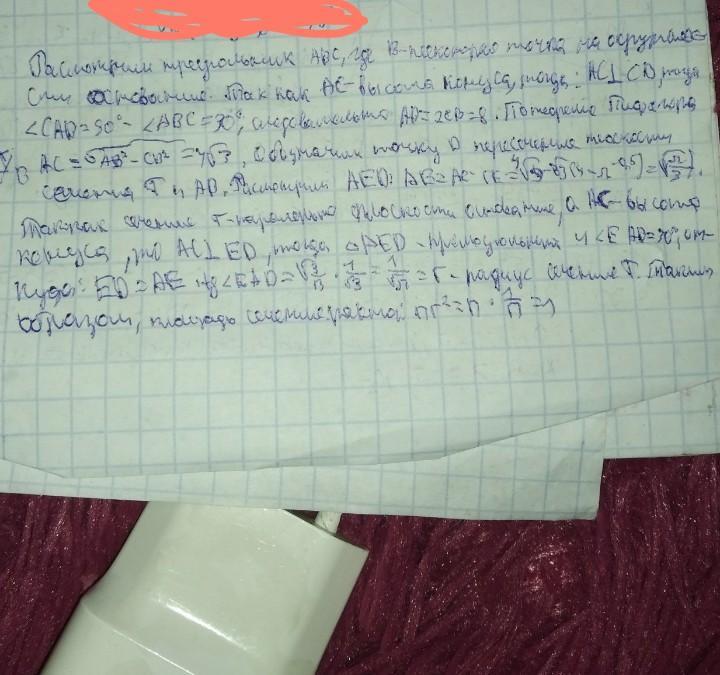 Рассмотрим треугольник ABC, где B-некоторая точка на окружно-
сти основания. Так как AC-высота конуса, тогда: AC⊥CD, тогда
∠CAD=90°-∠ABC=30°, следовательно AD=2CB=8. По теореме Пифагора
AC=√AB²-CB²=4√3, Обозначим точку D пересечение плоскости
сечения T и AD. Рассмотрим AED: AE=AC-CE=
Так как сечение T-параллельно плоскости основание, а AC-высота
конуса, то AC⊥ED, тогда △AED-прямоугольный и ∠EAD=30°, от-
куда: ED=AE·tg∠EAD=√3/π·1/√3=1/√π=r-радиус сечение T. Таким
образом, площадь сечение πr²=π·1/π=1